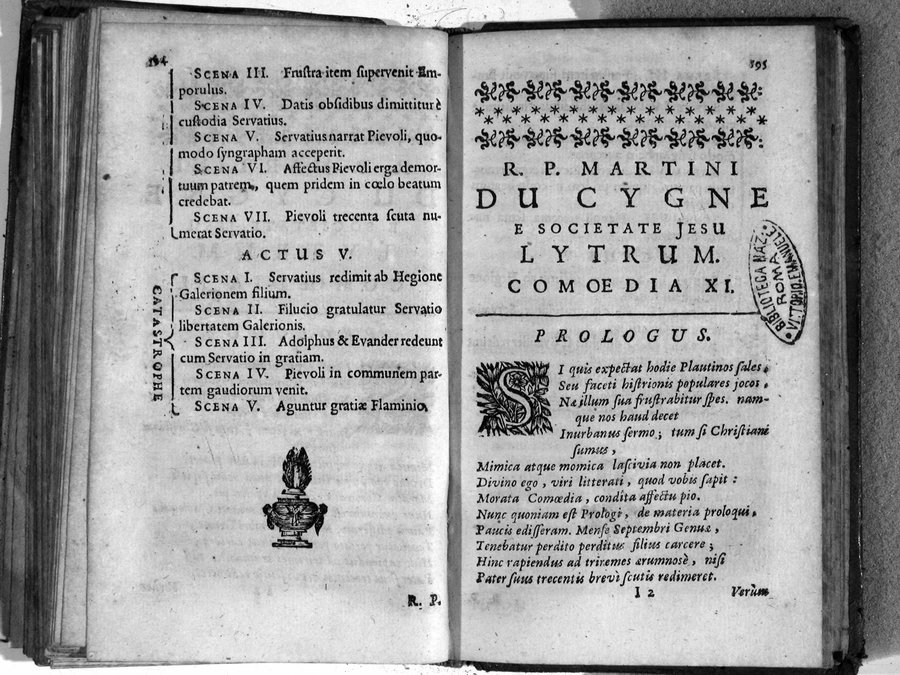 194
SCENA III. Fruſtra item ſupervenit Em-
porulus.
SCENA IV. Datis obſidibus dimittitur è
cuſtodia Servatius.
SCENA V. Servatius narrat Pievoli, quo-
modo ſyngrapham acceperit.
SCENA VI. Affectus Pievoli erga demor-
tuum patrem, quem pridem in cœlo beatum
credebat.
SCENA VII. Pievoli trecenta ſcuta nu-
merat Servatio.
ACTUS V.
CATASTROPHE
SCENA I. Servatius redimit ab Hegione
Galerionem filium.
SCENA II. Filucio gratulatur Servatio
libertatem Galerionis.
SCENA III. Adolphus & Evander redeunt
cum Servatio in gratiam.
SCENA IV. Pievoli in communem par-
tem gaudiorum venit.
SCENA V. Aguntur gratiæ Flaminio,
R. P.
195
R. P. MARTINI
DU CYGNE
E SOCIETATE JESU
LYTRUM.
COMOEDIA XI.
BIBLIOTECA NAZ.
ROMA
VITTORIO EMANUELE
PROLOGUS.
SI quis expectat hodie Plautinos ſales,
Seu faceti hiſtrionis populares jocos,
Næ illum ſua fruſtrabitur ſpes. nam-
que nos haud decet
Inurbanus ſermo; tum ſi Chriſtiani
ſumus,
Mimica atque momica laſcivia non placet.
Divino ego, viri litterati, quod vobis ſapit:
Morata Comœdia, condita affectu pio.
Nunc quoniam eſt Prologi, de materia proloqui,
Paucis edifſeram. Menſe Septembri Genuæ,
Tenebatur perdito perditus filius carcere;
Hinc rapiendus ad triremes ærumnosè, niſi
Pater ſuus trecentis brevì ſcutis redimeret.
I 2
Verùm